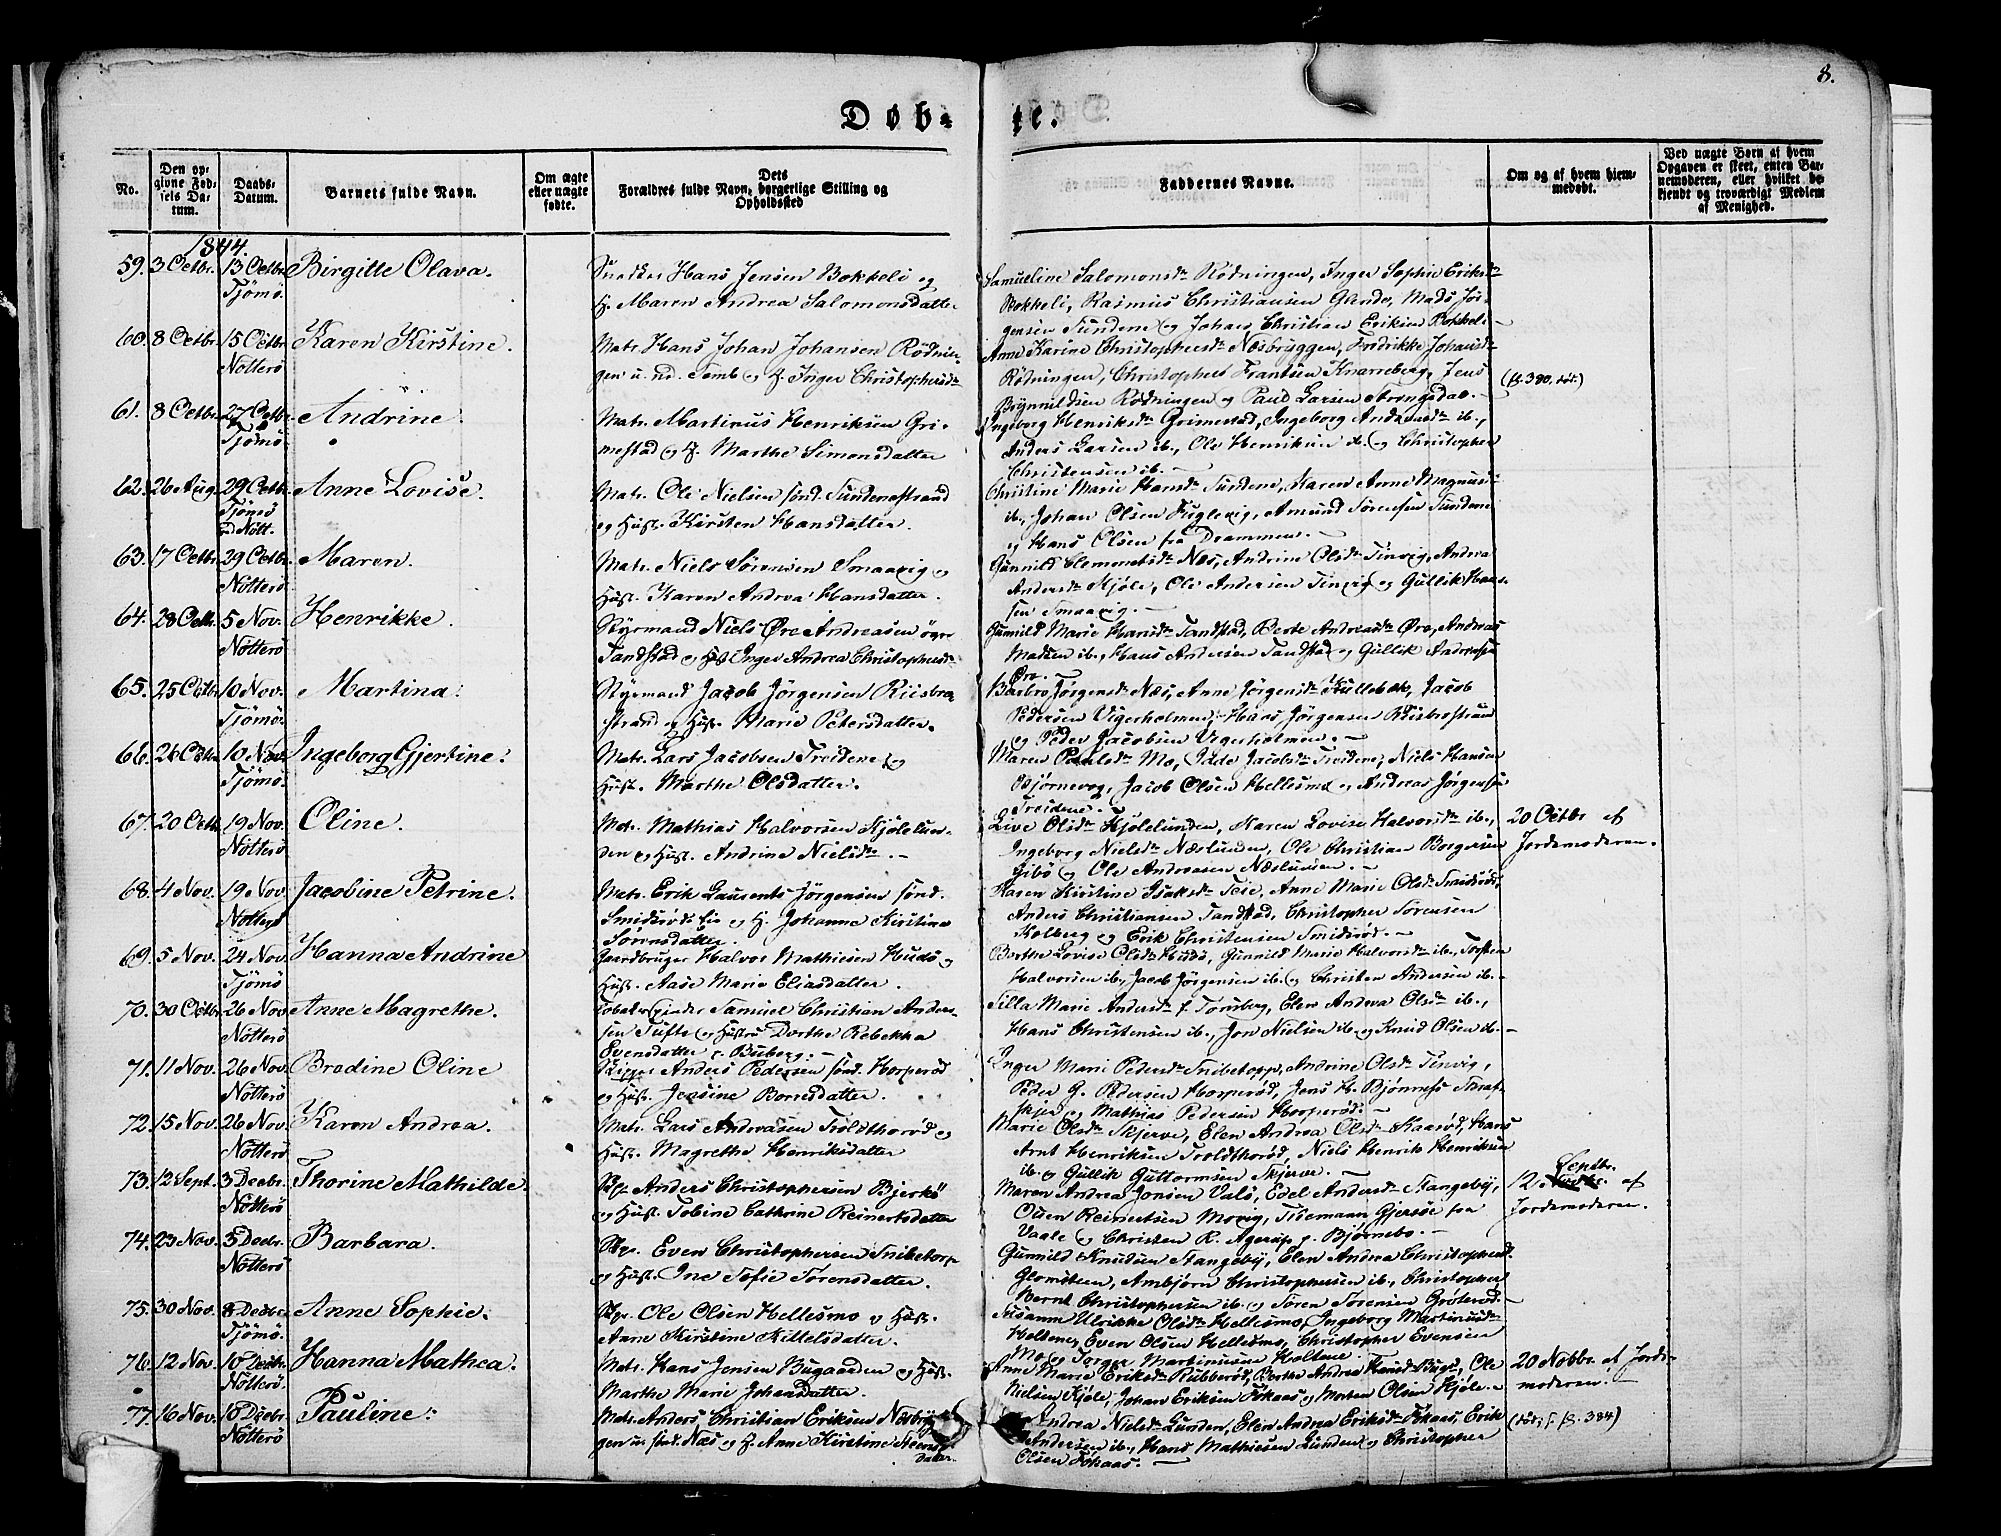 8.
Døb-
te.
No.
Den op-
givne Fød-
sels Da-
tum.
Daabs-
Datum.
Barnets fulde Navn.
Om ægte
eller uægte
fødte.
Dets
Forældres fulde Navn, borgerlige Stilling og
Opholdssted
Faddernes Navne.
Om og af hvem hjem-
medøbt.
Ved uægte Børn af hvem
Opgaven er skeet, enten Bar-
nemoderen, eller hvilket be-
kjendt og troværdigt Medlem
af Menighed.
1844.
59. 3 Octbr. 13 Octbr Birgitte Olava.
Tjømø.
Snedker Hans Jensen Bokkeli og
H. Maren Andrea Salomonsdatter
Samueline Salomonsdr Rødningen, Inger Sophie Eriksdr
Bokkeli, Rasmus Christiansen Glende, Mads Jør-
gensen Sundene og Johan Christian Eriksen Bokkeli
60. 8 Octbr. 15 Octbr Karen Kirstine.
Nøtterø
Matr. Hans Johan Johansen Rødnin-
gen u. nd. Semb og H. Inger Christophersdr
Anne Karine Christophersdr Næsbryggen, Fredrikke Johansdr
Rødningen, Christopher Frantsen Knarreberg, Jens
Brynnildsen Rødningen og Paul Larsen Strengsdal.
(p. 380. død.)
61. 8 Octbr. 27 Octbr. Andrine.
Tjømø.
Matr. Martinus Henriksen Gri-
mestad og H. Marthe Simonsdatter
Ingeborg Henriksdr Grimestad, Ingeborg Andersdr ib.,
Anders Larsen ib., Ole Henriksen ib. og Christopher
Christensen ib.
62. 26 Aug. 29 Octbr. Anne Lovise.
Tjømø
og Nøtt.
Matr. Ole Nielsen sønd. Sundenestrand
og Hust. Kirsten Hansdatter.
Christine Marie Hansdr Sundene, Karen Anne Magnusdr
ib., Johan Olsen Fuglevig, Amund Sørensen Sundene
og Hans Olsen fra Drammen.
63. 17 Octbr. 29 Octbr. Maren.
Nøtterø
Matr. Niels Sørensen Smaavig og
Hust. Karen Andrea Hansdatter.
Gunnild Clemmetsdr Næs, Andrine Olsdr Tinvig, Andrea
Andersdr Kjøle, Ole Andersen Tinvig og Gullik Han-
sen Smaavig.
64. 28 Octbr. 5 Nov. Henrikke.
Nøtterø
Styrmand Niels Øre Andreasen øgre
Tandstad og Hust Inger Andrea Christophersdr
Gunnild Marie Hansdr Tandstad, Berte Andreasdr Øre, Andreas
Madsen ib., Hans Andersen Tandstad og Gullik Andersen
Øre.
65. 25 Octbr 10 Nov. Martina.
Tjømø.
Styrmand Jacob Jørgensen Riisbroe
strand og Hust. Marie Petersdatter.
Barbro Jørgensdr Næs, Anne Jørgensdr Kullebæk, Jacob
Pedersen Vigerholmen, Hans Jørgensen Riisbrostrand
og Peder Jacobsen Vegerholmen.
66. 26 Octbr. 10 Nov. Ingeborg Gjertine.
Tjømø.
Matr. Lars Jacobsen Treidene og
Hust. Marthe Olsdatter.
Maren Paulsdr Mo, Idde Jacobsdr Treidene, Niels Hansen
Bjørnevog, Jacob Olsen Hellesmo og Andreas Jørgensen
Treidene.
67. 20 Octbr. 19 Nov. Oline.
Nøtterø
Matr. Mathias Halvorsen Kjølelun-
den og Hust. Andrine Nielsdr.
Live Olsdr Kjølelunden, Karen Lovise Halvorsdr ib.,
Ingeborg Nielsdr Næslunden, Ole Christian Borgersen
Gibø og Ole Andreasen Næslunden.
20 Octbr af
Jordemoderen.
68. 4 Nov. 19 Nov. Jacobine Petrine.
Nøtterø
Matr. Erik Laurents Jørgensen sønd.
Smidsrød eie og H. Johanne Kirstine
Sørensdatter.
Karen Kirstine Isaksdr Teie, Anne Marie Olsdr Smidsrød,
Anders Christiansen Tandstad, Christopher Sørensen
Kolberg og Erik Christensen Smidsrød.
69. 5 Nov. 24 Nov. Hanna Andrine
Tjømø
Gaardbruger Halvor Mathisen Hudø og
Hust. Aase Marie Eliasdatter.
Berthe Lovise Olsdr Hudø, Gunnild Marie Halvorsdr ib., Torsten
Halvorsen ib., Jacob Jørgensen ib. og Christen Andersen ib.
70. 30 Octbr. 26 Nov. Anne Magrethe.
Nøtterø
Tobaksspinder Samuel Christian Ander-
sen Tufte og Hustru Dorthe Rebekka
Evensdatter v. Buberg.
Silla Marie Andersdr f. Tønsberg, Elen Andrea Olsdr ib.,
Hans Christensen ib., Jon Nielsen ib. og Knud Olsen ib.
71. 11 Nov. 26 Nov. Bredine Oline
Nøtterø
Skipper Anders Pedersen sønd. Horperød
og Hust. Jensine Borresdatter.
Inger Marie Pedersdr Snibetopp, Andrine Olsdr Tinvig,
Peder G. Pedersen Horperød, Jens H. Bjønness Skraf-
skjer og Mathias Pedersen Horperød.
72. 15 Nov. 26 Nov. Karen Andrea.
Nøtterø
Matr. Lars Andreasen Troldthorød og
Hust. Magrethe Henriksdatter
Marie Olsdr Skjerve, Elen Andrea Olsdr Kaarød, Hans
Arnt Henriksen Troldthorød, Niels Henrik Henriksen
ib. og Gullik Guttormsen Skjerve.
73. 12 Sept. 3 Decbr. Thorine Mathilde.
Nøtterø
Skp. Anders Christophersen Bjerkø
og Hust. Tobine Cathrine Reinertsdatter
Maren Andrea Jonsen Valø, Edel Andersdr Stangeby,
Olsen Reinertsen Movig, Tidemann Gjersøe fra
Vaale og Christen R. Agerup g. Bjørnebo.
Septbr.
12 af
Jordemoderen.
74. 23 Nov. 5 Decbr. Barbara.
Nøtterø
Skp. Even Christophersen Snibetorp
og Hust. Ine Sofie Sørensdatter.
Gunnild Knudsen Stangeby, Elen Andrea Christophersdr
Glomsteen, Ambjørn Christophersen ib., Christopher
Bernt Christophersen ib. og Søren Sørensen Grøterød.
75. 30 Nov. 8 Decbr. Anne Sophie.
Tjømø.
Skp. Ole Olsen Hellesmo og Hust.
Anne Kirstine Kittelsdatter.
Susanne Ulrikke Olsdr Hellesmo, Ingeborg Martinusdr
Holtene, Even Olsen Hellesmo, Christopher Evensen
Mo og Torger Martinusen Holtene.
76. 12 Nov. 10 Decbr. Hanna Mathea.
Nøtterø.
Matr. Hans Jensen Bugaarden og Hust.
Marthe Marie Johansdatter.
Anne Marie Eriksdr Rubberød, Berthe Andrea Knudsdr Bugd, Ole
Nielsen Kjøle, Johan Eriksen Fokaas og Morten Olsen Kjøle.
20 Novbr. af Jorde-
moderen.
77. 16 Nov. 10 Decbr. Pauline.
Nøtterø
Matr. Anders Christian Eriksen Næsbryg-
gen u. sønd. Næs og H. Anne Kirstine
datter.
Andrea Nielsdr Lunden, Elen Andrea Eriksdr Fokaas, Erik
Andersen ib., Hans Mathisen Lunden og Christopher
Olsen Fokaas.
(død; s. p. 384)